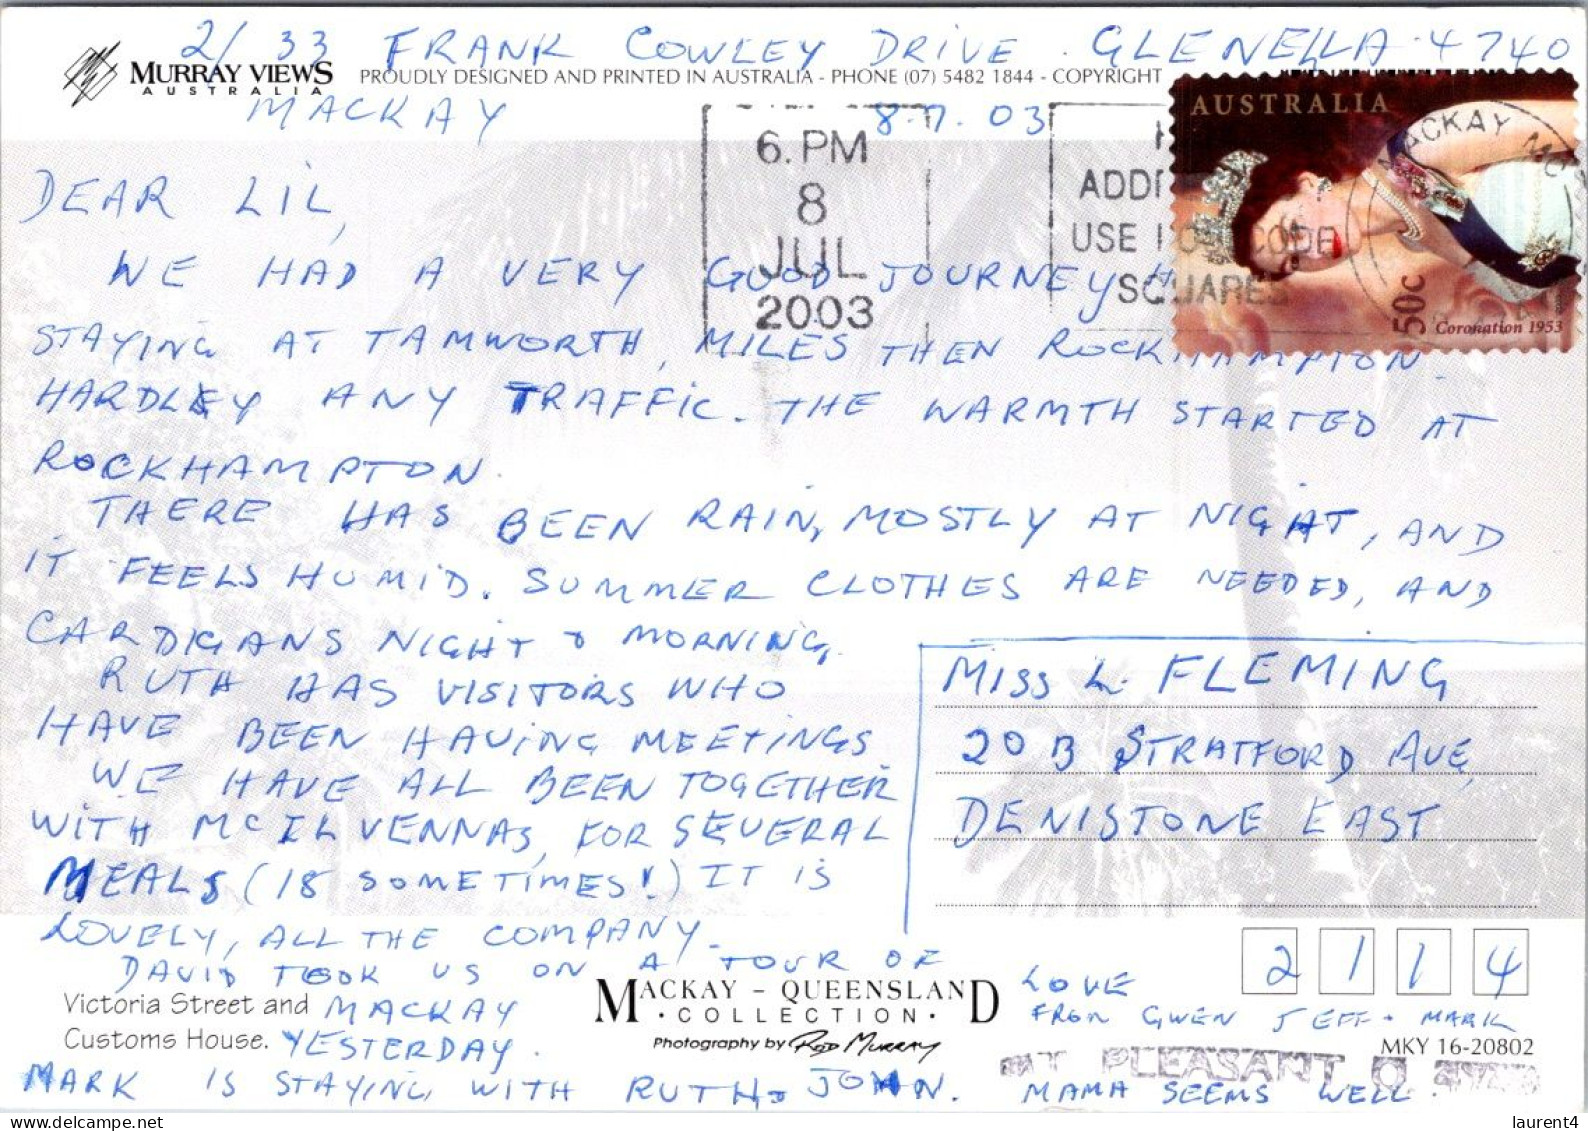 2/ 33 FRANK COWLEY DRIVE. GLENELLA 4740
MURRAY VIEWS
AUSTRALIA
PROUDLY DESIGNED AND PRINTED IN AUSTRALIA - PHONE (07) 5482 1844 - COPYRIGHT
MACKAY 8.7.03
6. PM
8
JUL
2003
USE POSTCODE
SQUARES
AUSTRALIA
MACKAY MC
50c
Coronation 1953
DEAR LIL,
WE HAD A VERY GOOD JOURNEY
STAYING AT TAMWORTH, MILES THEN ROCKHAMPTON.
HARDLEY ANY TRAFFIC. THE WARMTH STARTED AT
ROCKHAMPTON.
THERE HAS BEEN RAIN, MOSTLY AT NIGHT, AND
IT FEELS HUMID. SUMMER CLOTHES ARE NEEDED, AND
CARDIGANS NIGHT & MORNING.
RUTH HAS VISITORS WHO
HAVE BEEN HAVING MEETINGS
WE HAVE ALL BEEN TOGETHER
WITH MCILVENNAS, FOR SEVERAL
MEALS (18 SOMETIMES!) IT IS
LOVELY, ALL THE COMPANY.
DAVID TOOK US ON A TOUR OF
MACKAY
YESTERDAY.
MARK IS STAYING WITH RUTH & JOHN. MAMA SEEMS WELL.
LOVE
FROM GWEN JEFF & MARK
MISS L. FLEMING
20 B STRATFORD AVE,
DENISTONE EAST
2 1 1 4
Victoria Street and
Customs House.
MACKAY – QUEENSLAND
• COLLECTION •
Photography by Rod Murray
MKY 16-20802
MT PLEASANT Q 4740
laurent4